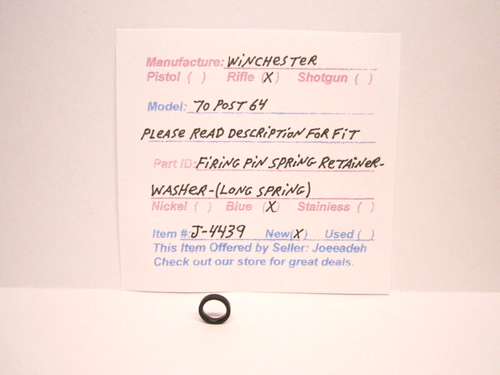 Manufacture: WINCHESTER
Pistol ( ) Rifle (X) Shotgun ( )
Model: 70 POST 64
PLEASE READ DESCRIPTION FOR FIT
Part ID: FIRING PIN SPRING RETAINER-
WASHER-(LONG SPRING)
Nickel ( ) Blue (X) Stainless ( )
Item #: J-4439 New(X) Used ( )
This Item Offered by Seller: Joeeadeh
Check out our store for great deals.